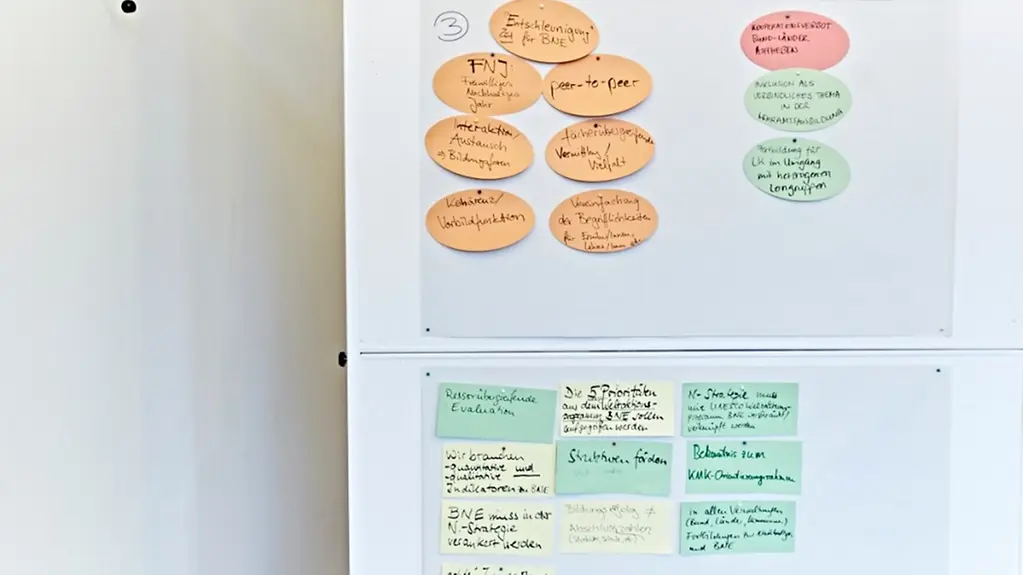 3
"Entschleunigung"
Zeit für BNE
FNJ:
Freiwilliges
Nachhaltiges
Jahr
peer-to-peer
Interaktion/
Austausch
⇒ Bildungsformen
fächerübergreifende
Vermittlung/
Vielfalt
Kohärenz/
Vorbildfunktion
Vereinfachung
der Begrifflichkeiten
für Erzieher/innen,
Lehrer/innen etc.
KOOPERATIONSVERBOT
BUND-LÄNDER
AUFHEBEN
INKLUSION ALS
VERBINDLICHES THEMA
IN DER
LEHRAMTSAUSBILDUNG
Fortbildung für
LK im Umgang
mit heterogenen
Lerngruppen
Ressortübergreifende
Evaluation
Die 5 Prioritäten
aus dem Weltaktions-
programm BNE sollen
aufgegriffen werden
N-Strategie muss
mit UNESCO Weltaktions-
programm BNE
verknüpft werden
Wir brauchen
-quantitative und
-qualitative
Indikatoren zu BNE
Strukturen fördern
Bekenntnis zum
KMK-Orientierungsrahmen
BNE muss in der
N.-Strategie
verankert werden
Bildungserfolg ≠
Abschlusszahlen
in allen Verwaltungen
(Bund, Länder, Kommune)
Fortbildungen zu
und BNE